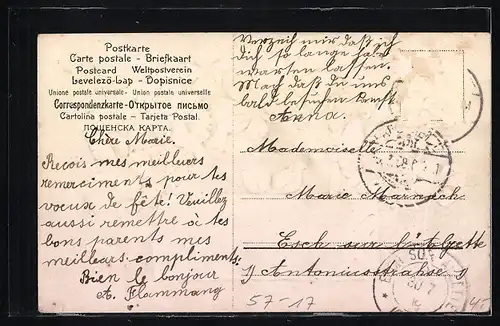 Postkarte
Carte postale - Briefkaart
Postcard Weltpostverein
Levelező-Lap - Dopisnice
Unione postale universale - Union postale universelle
Correspondenzkarte - Открытое письмо
Cartolina postale - Tarjeta Postal
ПОЩЕНСКА КАРТА.
Chère Marie.
Reçois mes meilleurs
remerciments pour tes
voeux de fête! Veuillez
aussi remettre à tes
bons parents mes
meilleurs compliments.
Bien le bonjour
A. Flammang
Verzeih mir daß ich
dich so lange hab
warten lassen.
Mag daß du uns
bald besuchen
Anna.
Mademoiselle
Marie Marnach
Esch sur l'Alzette
9 Antoniusstrahse 9
57-17